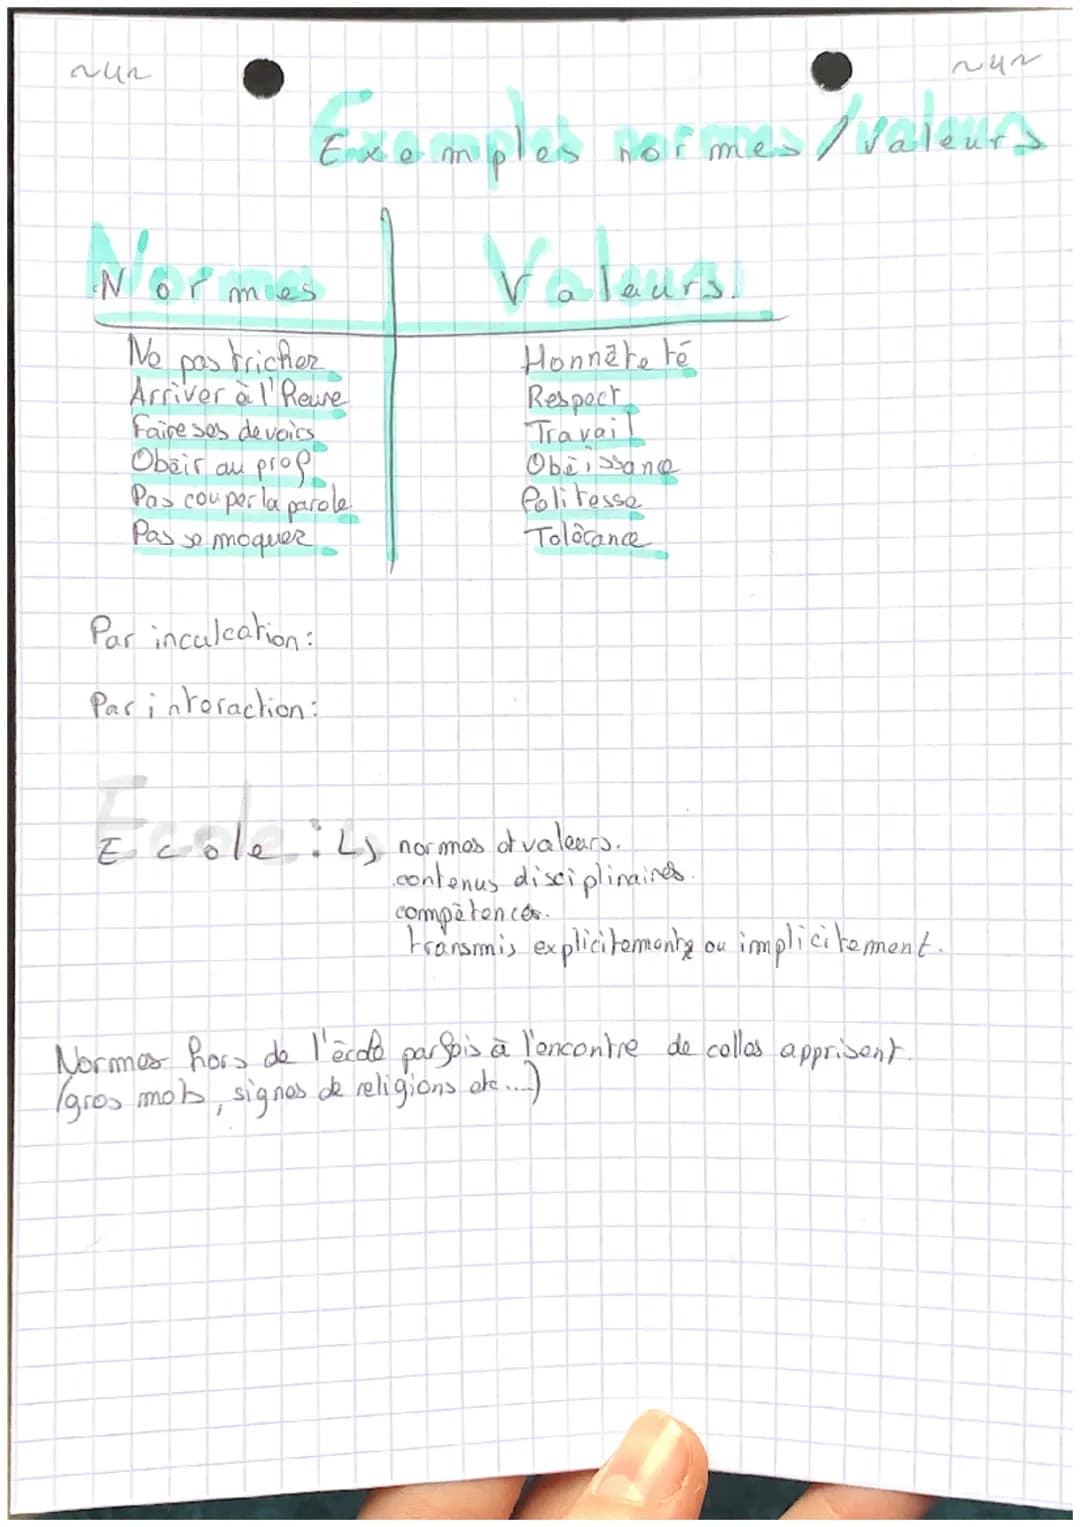 ~4~ ~4~
Exemples normes / valeurs
Normes Valeurs.
Ne pas tricher Honnêteté
Arriver à l'heure Respect
Faire ses devoirs Travail
Obéir au prof Obéissance
Pas couper la parole. Politesse
Pas se moquer Tolérance
Par inculcation:
Par interaction:
Ecole : L> normes et valeurs.
contenus disciplinaires.
compétences.
transmis explicitement ou implicitement.
Normes hors de l'école parfois à l'encontre de celles apprisent.
(gros mots, signes de religions etc...)